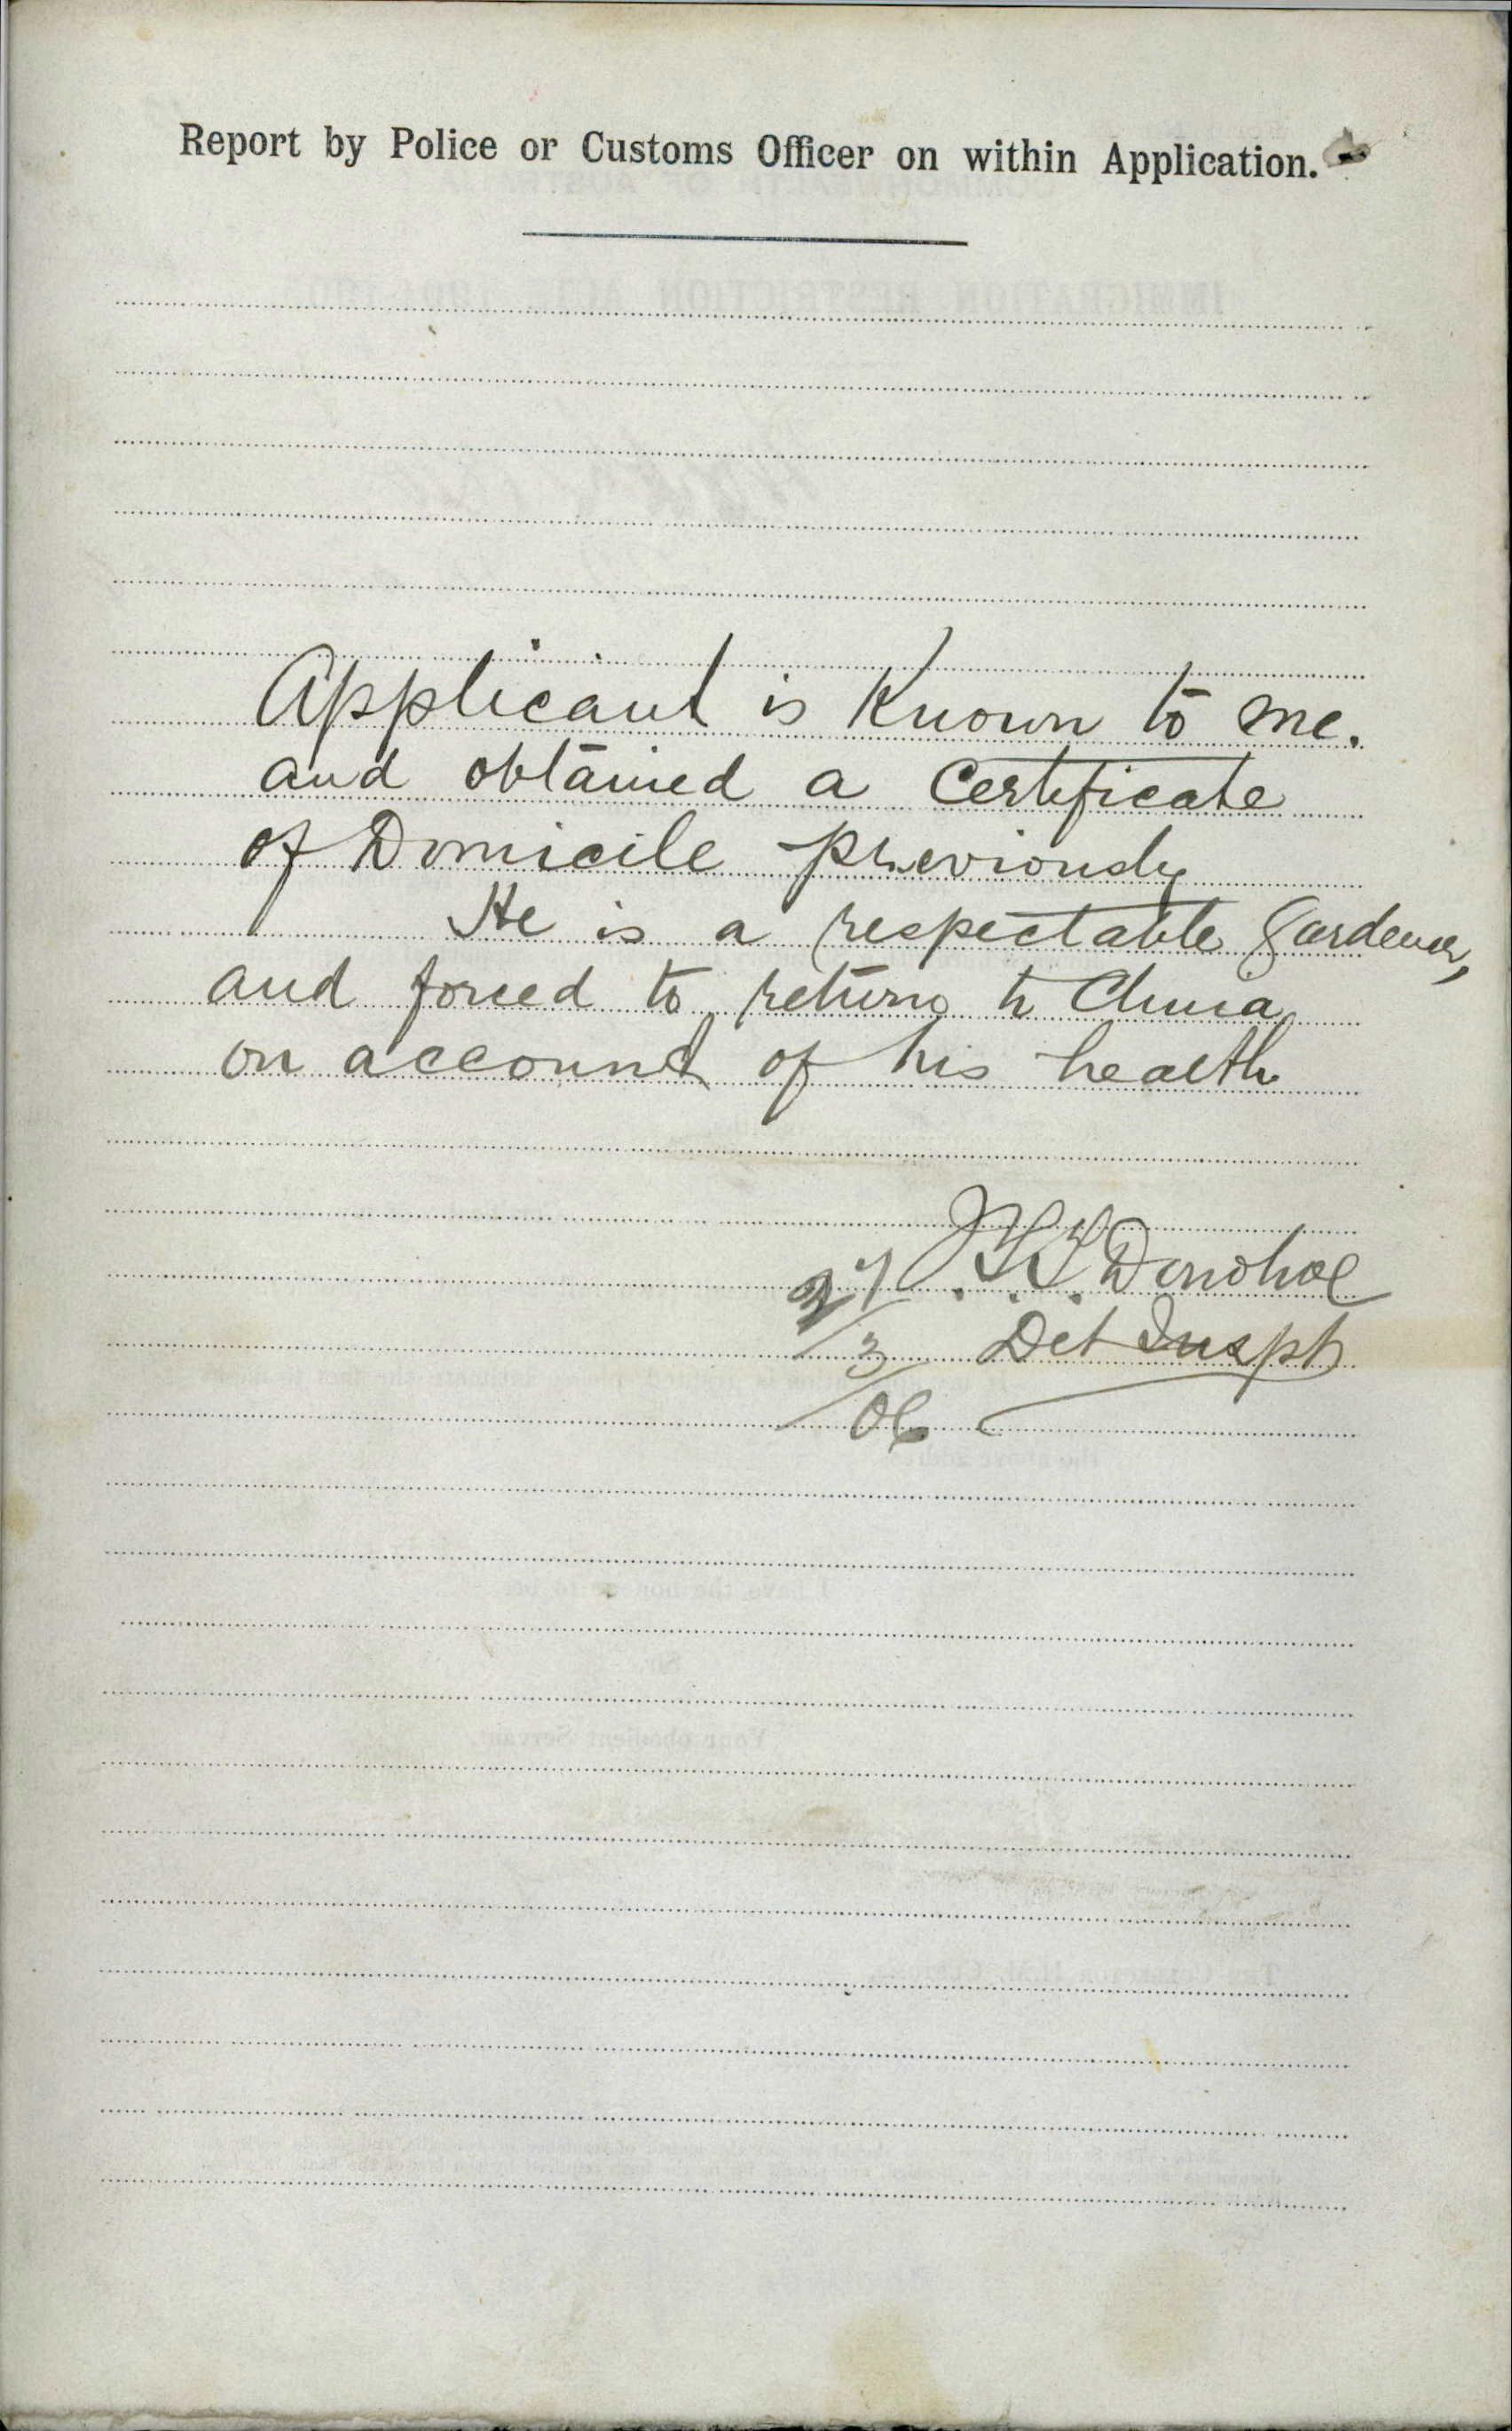 Report by Police or Customs Officer on within Application.
Applicant is Known to me.
and obtained a Certificate
of Domicile previously
He is a respectable Gardener,
and forced to return to China
on account of his health
Donohoe
27/3/06 Det Inspr